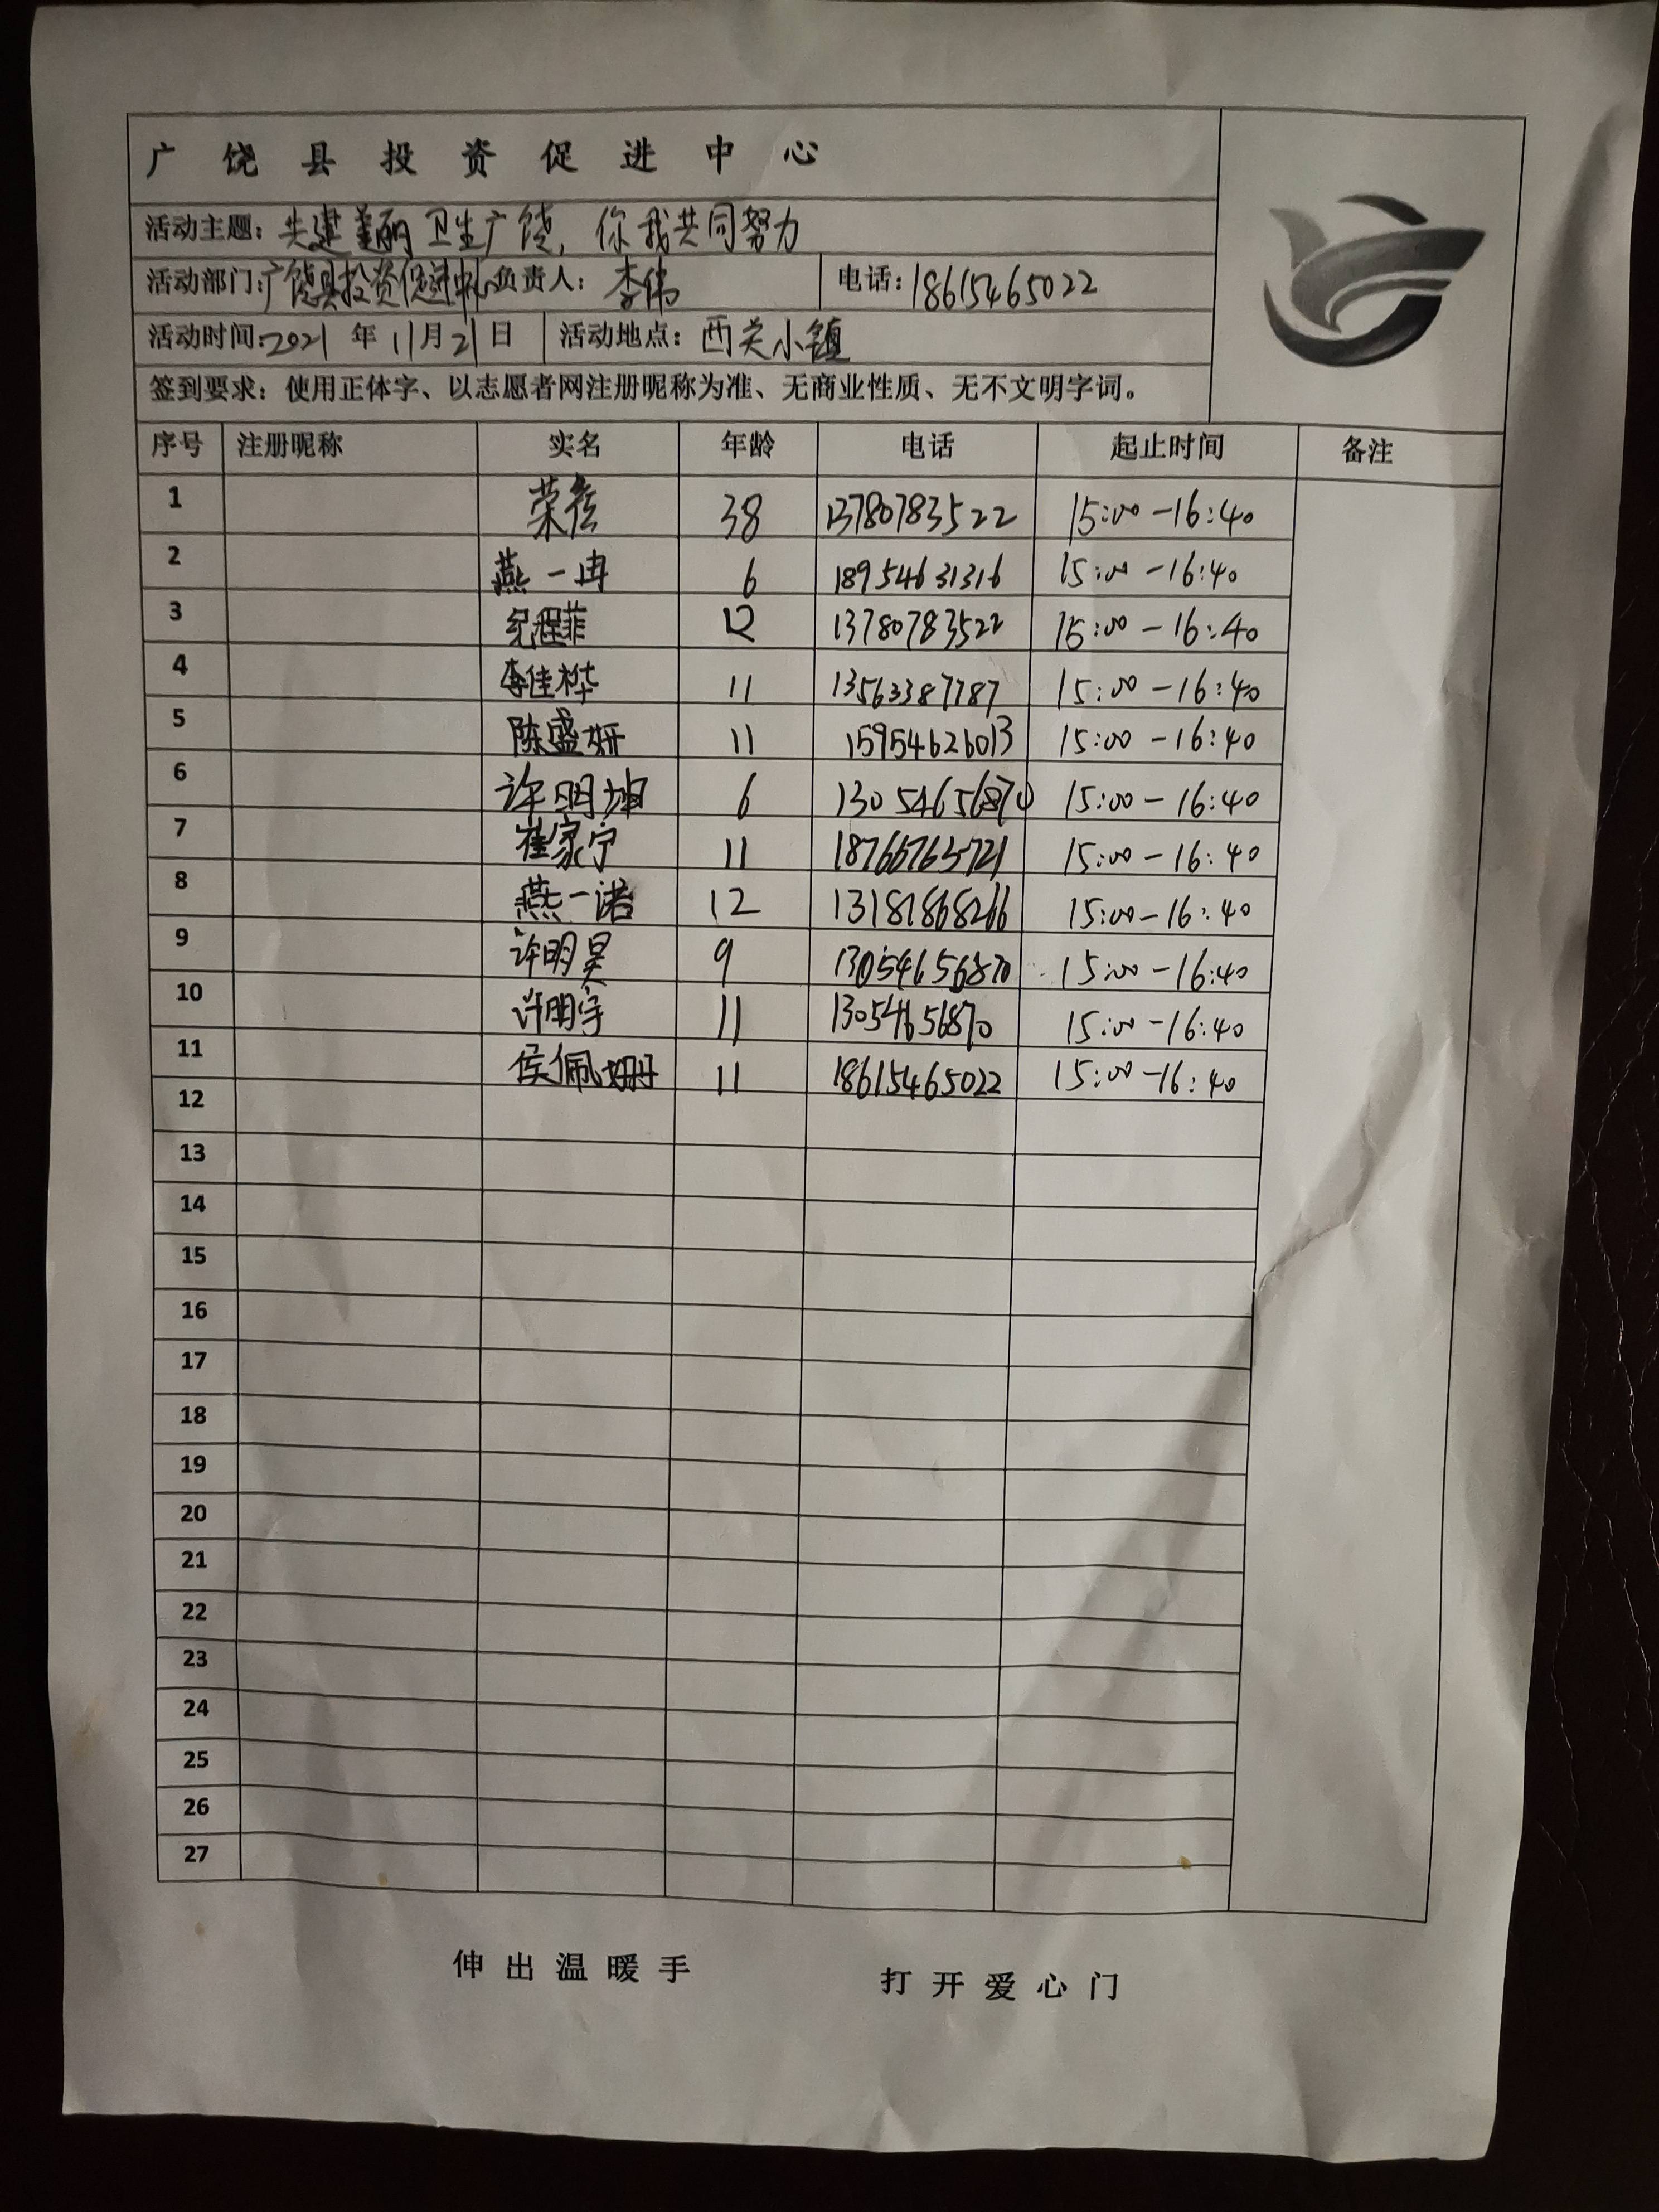 广饶县投资促进中心
活动主题：共建美丽卫生广饶，你我共同努力
活动部门：广饶县投资促进中心 负责人：李伟 电话：18615465022
活动时间：2021年11月21日 活动地点：西关小镇
签到要求：使用正体字、以志愿者网注册昵称为准、无商业性质、无不文明字词。
序号 注册昵称 实名 年龄 电话 起止时间 备注
1 荣 38 13780783522 15:00-16:40
2 燕一冉 6 18954631316 15:00-16:40
3 纪程菲 12 13780783522 15:00-16:40
4 李佳桦 11 13563387787 15:00-16:40
5 陈盛妍 11 15954626013 15:00-16:40
6 许明坤 6 13054656870 15:00-16:40
7 崔家宁 11 18766763721 15:00-16:40
8 燕一诺 12 13181868266 15:00-16:40
9 许明昊 9 13054656870 15:00-16:40
10 许明宇 11 13054656870 15:00-16:40
11 侯佩姗 11 18615465022 15:00-16:40
12
13
14
15
16
17
18
19
20
21
22
23
24
25
26
27
伸出温暖手 打开爱心门